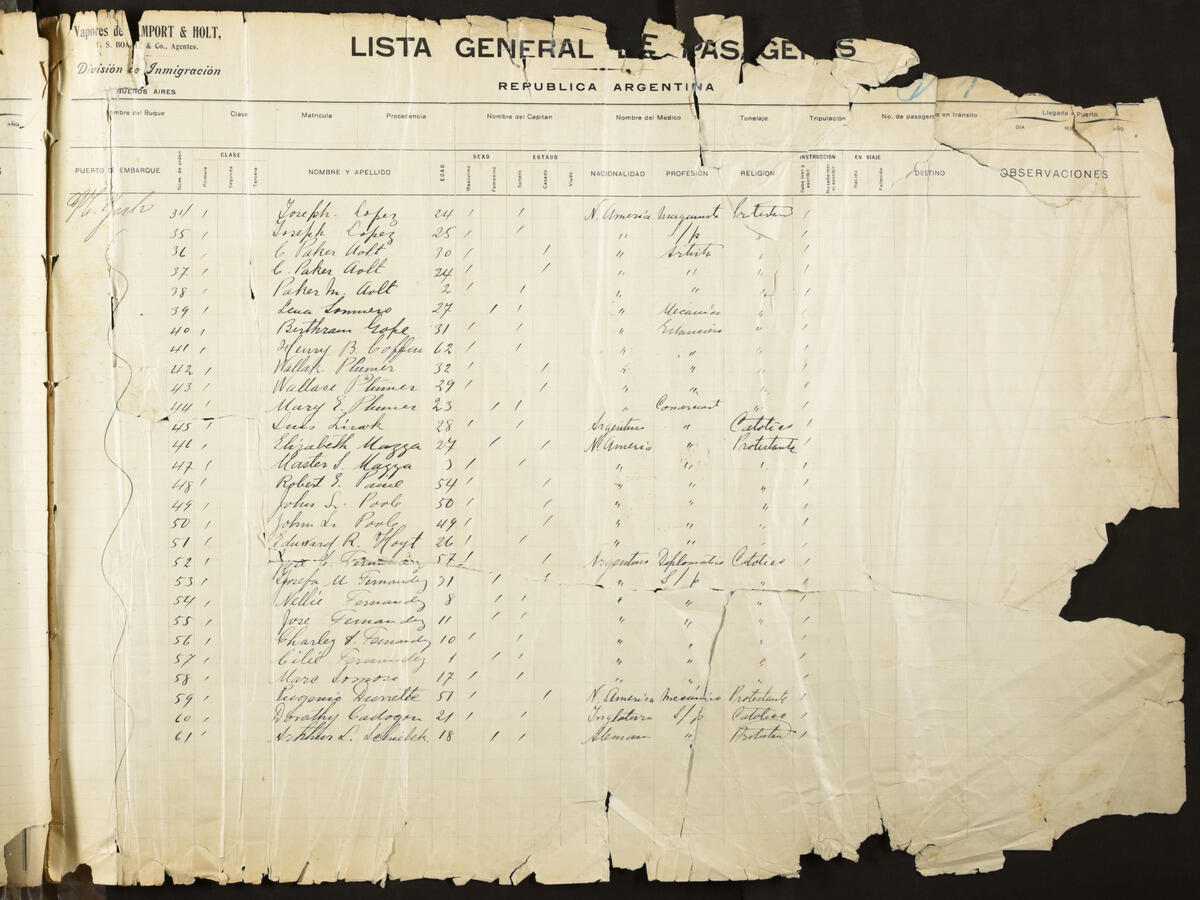 Vapores de LAMPORT & HOLT,
T. S. & Co., Agentes.
División de Inmigración
BUENOS AIRES
LISTA GENERAL DE PASAGEROS
REPUBLICA ARGENTINA
Nombre del Buque Clase Matricula Procedencia Nombre del Capitan Nombre del Médico Tonelaje Tripulación No. de pasageros en tránsito Llegada á Puerto
DIA AÑO
PUERTO DE EMBARQUE Núm. de orden CLASE Primera Segunda Tercera NOMBRE Y APELLIDO EDAD SEXO Masculino Femenino ESTADO Soltero Casado Viudo NACIONALIDAD PROFESIÓN RELIGION INSTRUCCIÓN Sabe leer y escribir No sabe leer ni escribir EN VIAJE Nacido Fallecido DESTINO OBSERVACIONES
34 ' Joseph Lopez 24 ' ' N. America '
35 ' Joseph Lopez 25 ' ' " S/p " '
36 ' C. Paker Aolt 30 ' ' " Artista " '
37 ' C. Paker Aolt 24 ' ' " " " '
38 ' Paker M. Aolt 2 ' ' " " " '
39 ' Lena 27 ' ' " Mecanico " '
40 ' Berthram Gope 31 ' ' " Estanciero " '
41 ' Henry B. Coffin 62 ' ' " " " '
42 ' Wallak Plumer 32 ' ' " " " '
43 ' Wallace Plumer 29 ' ' " " " '
44 ' Mary E. Plumer 23 ' ' " Comerciant " '
45 ' Luis 28 ' ' Argentino " Catolico '
46 ' Elizabeth Mazza 27 ' ' N. America " Protestante '
47 ' Master S. Mazza 3 ' ' " " " '
48 ' Robert E. 54 ' ' " " " '
49 ' John L. Poole 50 ' ' " " " '
50 ' John L. Poole 49 ' ' " " " '
51 ' Edward R. Hoyt 26 ' ' " " " '
52 ' Fernandez 57 ' ' Argentino Diplomatico Catolico '
53 ' Josefa U Fernandez 31 ' ' " S/p " '
54 ' Nellie Fernandez 8 ' ' " " " '
55 ' Jose Fernandez 11 ' ' " " " '
56 ' Charley A. Fernandez 10 ' ' " " " '
57 ' Cilie Fernandez 1 ' ' " " " '
58 ' Marc 17 ' ' " " " '
59 ' Eugenio Durrette 51 ' ' N. America Mecánico Protestante '
60 ' Dorathy Cadogon 21 ' ' Inglaterra S/p Catolico '
61 ' Arthur L. 18 ' ' Aleman " Protestan '